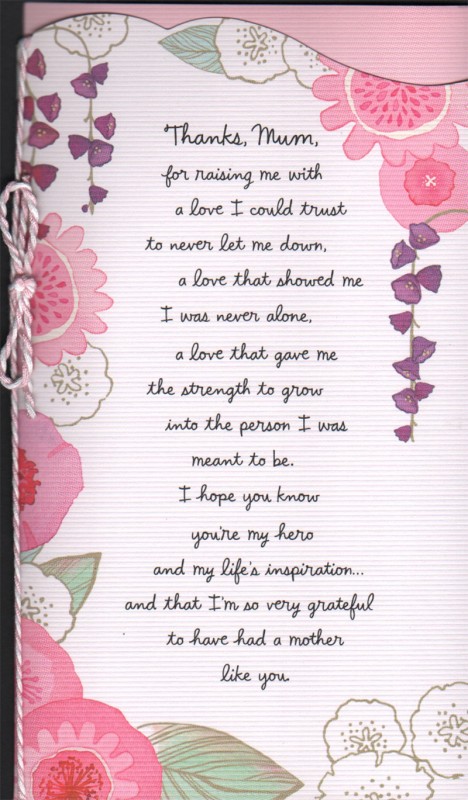 Thanks, Mum,
for raising me with
a love I could trust
to never let me down,
a love that showed me
I was never alone,
a love that gave me
the strength to grow
into the person I was
meant to be.
I hope you know
you're my hero
and my life's inspiration...
and that I'm so very grateful
to have had a mother
like you.